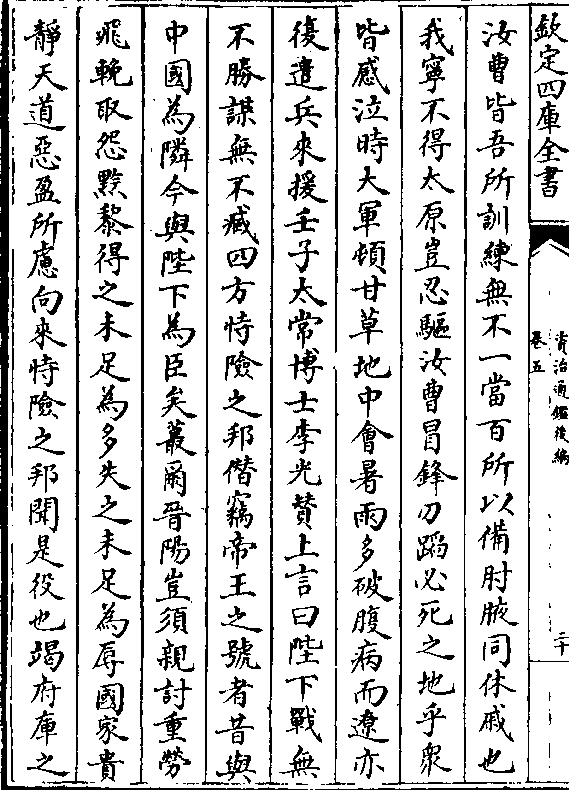 欽定四庫全書
資治通鑑後編
卷五
二十
汝曹皆吾所訓練無不一當百所以備肘腋同休戚也
我寧不得太原豈忍驅汝曹冒鋒刃蹈必死之地乎衆
皆感泣時大軍頓甘草地中會暑雨多破腹病而遼亦
復遣兵來援壬子太常博士李光贊上言曰陛下戰無
不勝謀無不臧四方恃險之邦僭竊帝王之號者昔與
中國為隣今與陛下為臣矣蕞爾晉陽豈須親討重勞
飛輓取怨黔黎得之未足為多失之未足為辱國家貴
靜天道惡盈所慮向來恃險之邦聞是役也竭府庫之